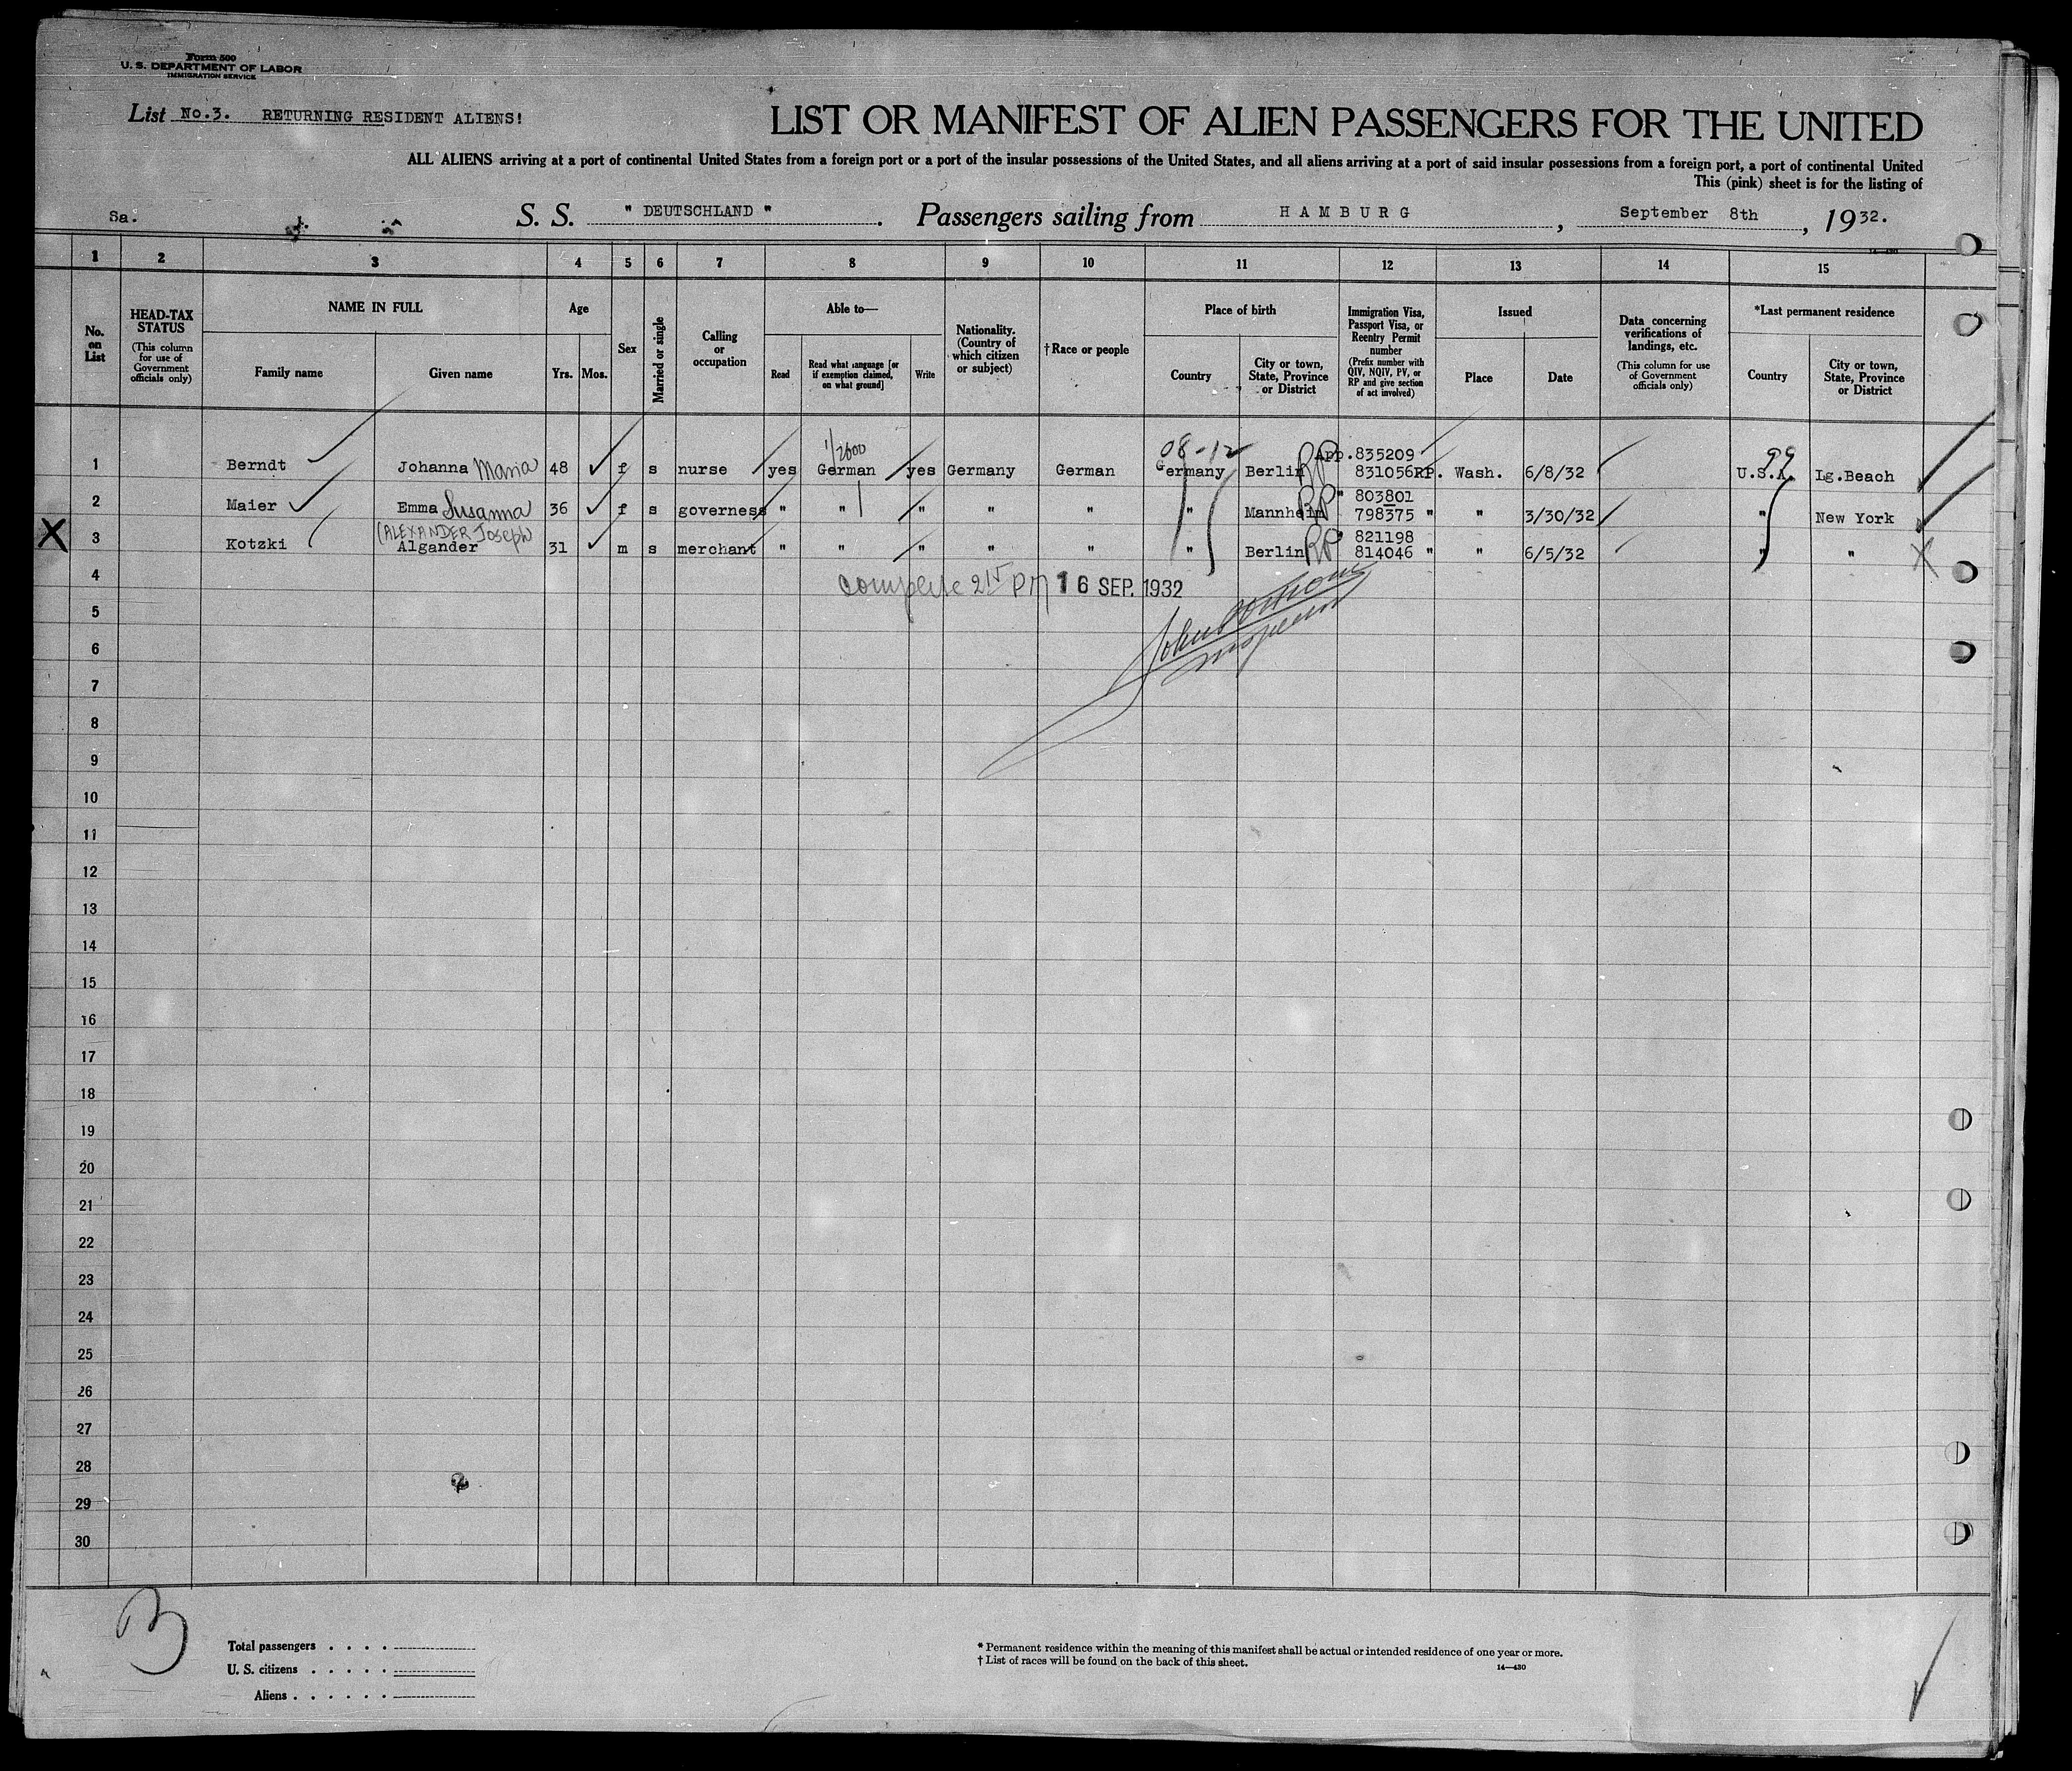 Form 500
U. S. DEPARTMENT OF LABOR
IMMIGRATION SERVICE
List No.3. RETURNING RESIDENT ALIENS!
LIST OR MANIFEST OF ALIEN PASSENGERS FOR THE UNITED
ALL ALIENS arriving at a port of continental United States from a foreign port or a port of the insular possessions of the United States, and all aliens arriving at a port of said insular possessions from a foreign port, a port of continental United
This (pink) sheet is for the listing of
Sa. S. S. " DEUTSCHLAND " . Passengers sailing from HAMBURG , September 8th , 1932.
14—430
1 2 3 4 5 6 7 8 9 10 11 12 13 14 15
No. on List
HEAD-TAX STATUS (This column for use of Government officials only)
NAME IN FULL
Family name Given name
Age
Yrs. Mos.
Sex
Married or single
Calling or occupation
Able to—
Read Read what language [or if exemption claimed, on what ground] Write
Nationality. (Country of which citizen or subject)
†Race or people
Place of birth
Country City or town, State, Province or District
Immigration Visa, Passport Visa, or Reentry Permit number (Prefix number with QIV, NQIV, PV, or RP and give section of act involved)
Issued
Place Date
Data concerning verifications of landings, etc. (This column for use of Government officials only)
*Last permanent residence
Country City or town, State, Province or District
1/2000 08-12 App. 835209 99
1 Berndt Johanna Maria 48 f s nurse yes German yes Germany German Germany Berlin RP 831056RP. Wash. 6/8/32 U.S.A. Lg.Beach
" 803801
2 Maier Emma Susanna 36 f s governess " " " " " " Mannheim RP 798375 " " 3/30/32 " New York
(ALEXANDER Joseph " 821198
X 3 Kotzki Algander 31 m s merchant " " " " " " Berlin RP 814046 " " 6/5/32 " " X
4 complete 215 PM 16 SEP. 1932
5
6
Inspector
7
8
9
10
11
12
13
14
15
16
17
18
19
20
21
22
23
24
25
26
27
28
29
30
3
Total passengers . . . .
U. S. citizens . . . . .
Aliens . . . . . .
* Permanent residence within the meaning of this manifest shall be actual or intended residence of one year or more.
† List of races will be found on the back of this sheet.
14—430